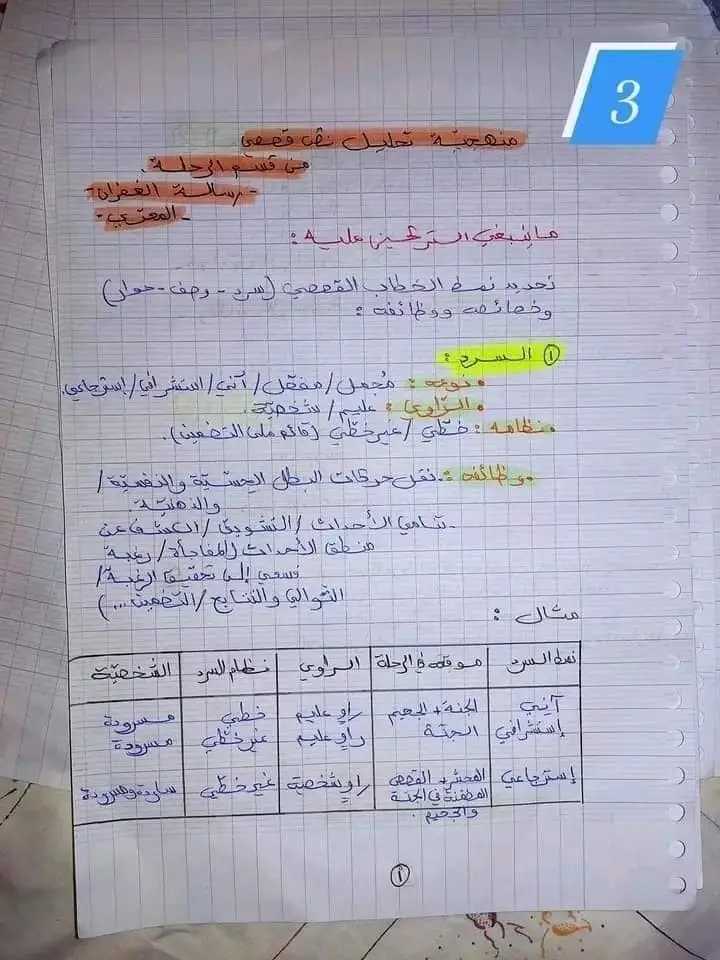 3
منهجيّة تحليل نصّ قصصي
من قسم الرحلة.
- رسالة الغفران -
- المعرّي -
ما ينبغي التركيز عليه :
تحديد نمط الخطاب القصصي (سرد - وصف - حوار)
وخصائصه ووظائفه :
① السرد :
• نوعه : مُجمل / مفصّل / آني / استشرافي / إسترجاعي.
• الرّاوي : عليم / شخصيّة.
• نظامه : خطّي / غير خطّي (قائم على التضمين).
• وظائفه : - نقل حركات البطل الحسيّة والنفسيّة /
والذهنيّة.
- تنامي الأحداث / التشويق / الكشف عن
منطق الأحداث (المفاجأة / رغبة
فسعي إلى تحقيق الرغبة /
التوالي والتتابع / التضمين ...)
مثال :
نمط السرد | موقعه في الرحلة | الراوي | نظام السرد | الشخصيّة
آني | الجنة + الجحيم | راوٍ عليم | خطي | مسرودة
إستشرافي | الجنّة | راوٍ عليم | غير خطّي | مسرودة
إسترجاعي | المحشر + القصص | راوٍ شخصيّة | غير خطّي | ساردة ومسرودة
المضمّنة في الجنة
والجحيم.
①